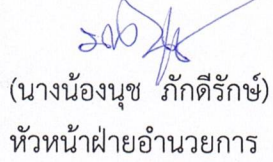 (นางน้องนุช ภักดีรักษ์)
หัวหน้าฝ่ายอำนวยการ